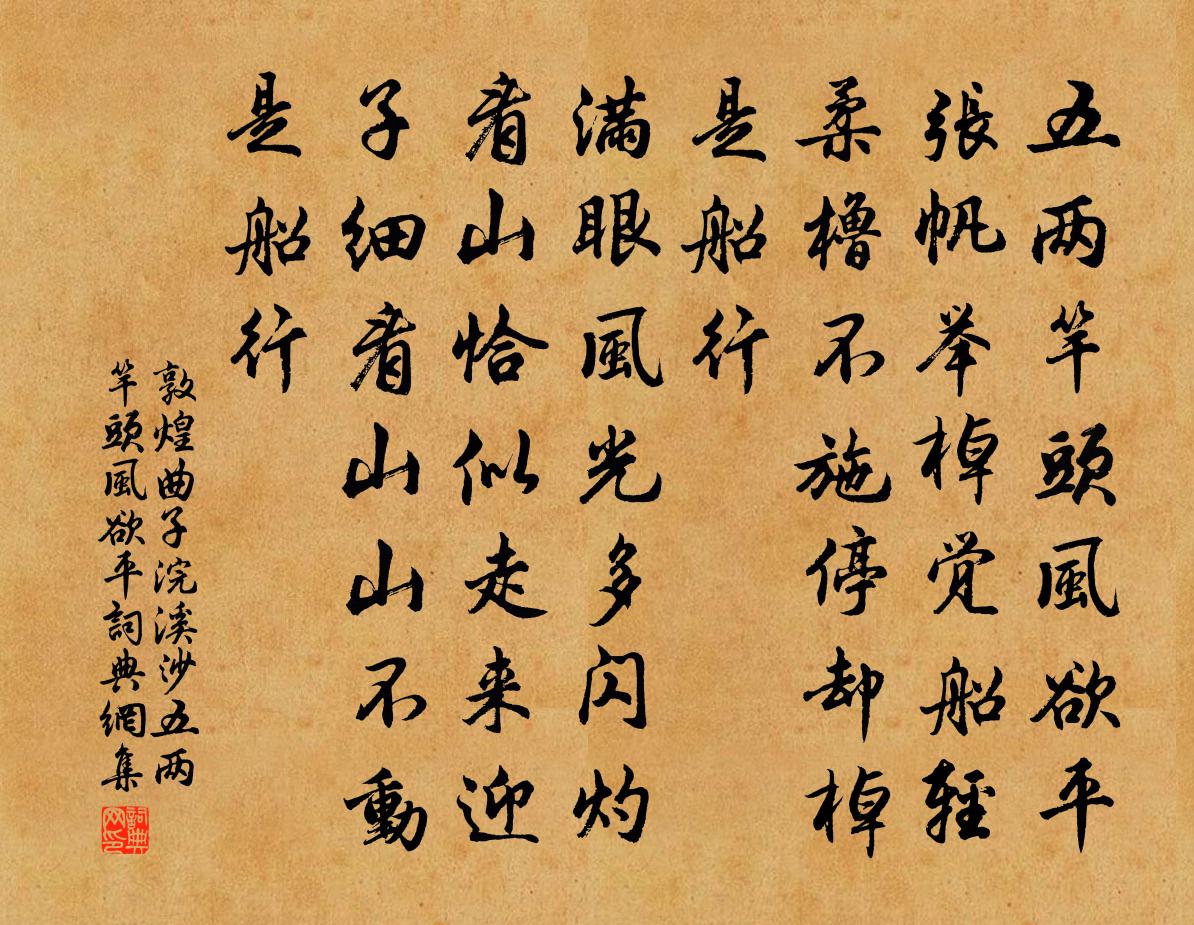 五两竿頭風欲平
張帆举棹觉船輕
柔櫓不施停却棹
是船行
满眼風光多闪灼
看山恰似走来迎
子细看山山不動
是船行
敦煌曲子浣溪沙五两
竿頭風欲平詞典網集
詞典
网印